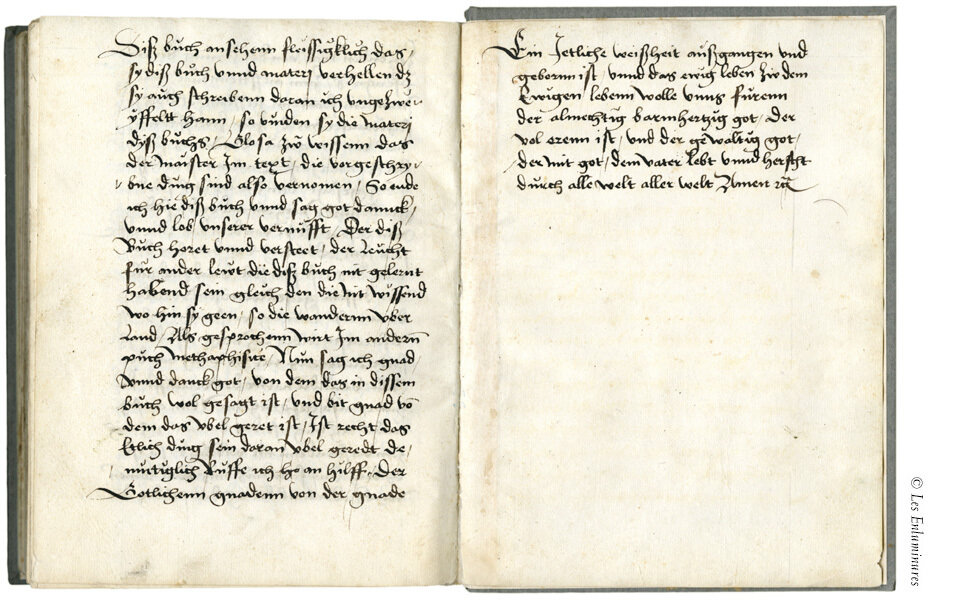 Diß buch ansehenn fleissigklich das /
sy diß buch vnnd materj verhellen dz
sy auch schreibenn daran ich vngezwe⸗
yffelt hann / so vinden sy die materj
dyß buchs / Glosa zů wissenn das
der maister Jm text / die vorgeschry⸗
bne ding sind also vernomen / So ende
ich hie diß buch vnnd sag got danck /
vnnd lob vnserer vernufft / Der diß
Buch horet vnnd versteet / der leucht
fur ander lewt die diß buch nit gelernt
habend sein gleich den die nit wissend
wo hin sy geen / so die wandernn vber
Land / Als gesprochenn wirt Jm andern̄
puch methaphisice / Nun sag ich gnad /
vnnd danck got / von dem das in dissem
buch wol gesagt ist / vnd bit gnad vō
dem das vbel geret ist / Jst recht das
Etlich ding sein daran vbel geredt de⸗
mutiglich Ruffe ich ho an hilff / Der
Gotlichenn gnadenn von der gnade
Ein Jetliche weißheit außgangen vnd
gebornn ist / vnnd das ewig leben zw dem
Ewigen lebenn wolle vnns furenn
der almechtig barmhertzig got / Der
vol erenn ist / vnd der gewaltig got /
der mit got / dem vater lebt vnnd herscht
durch alle welt aller welt Amen
© Les Enluminures